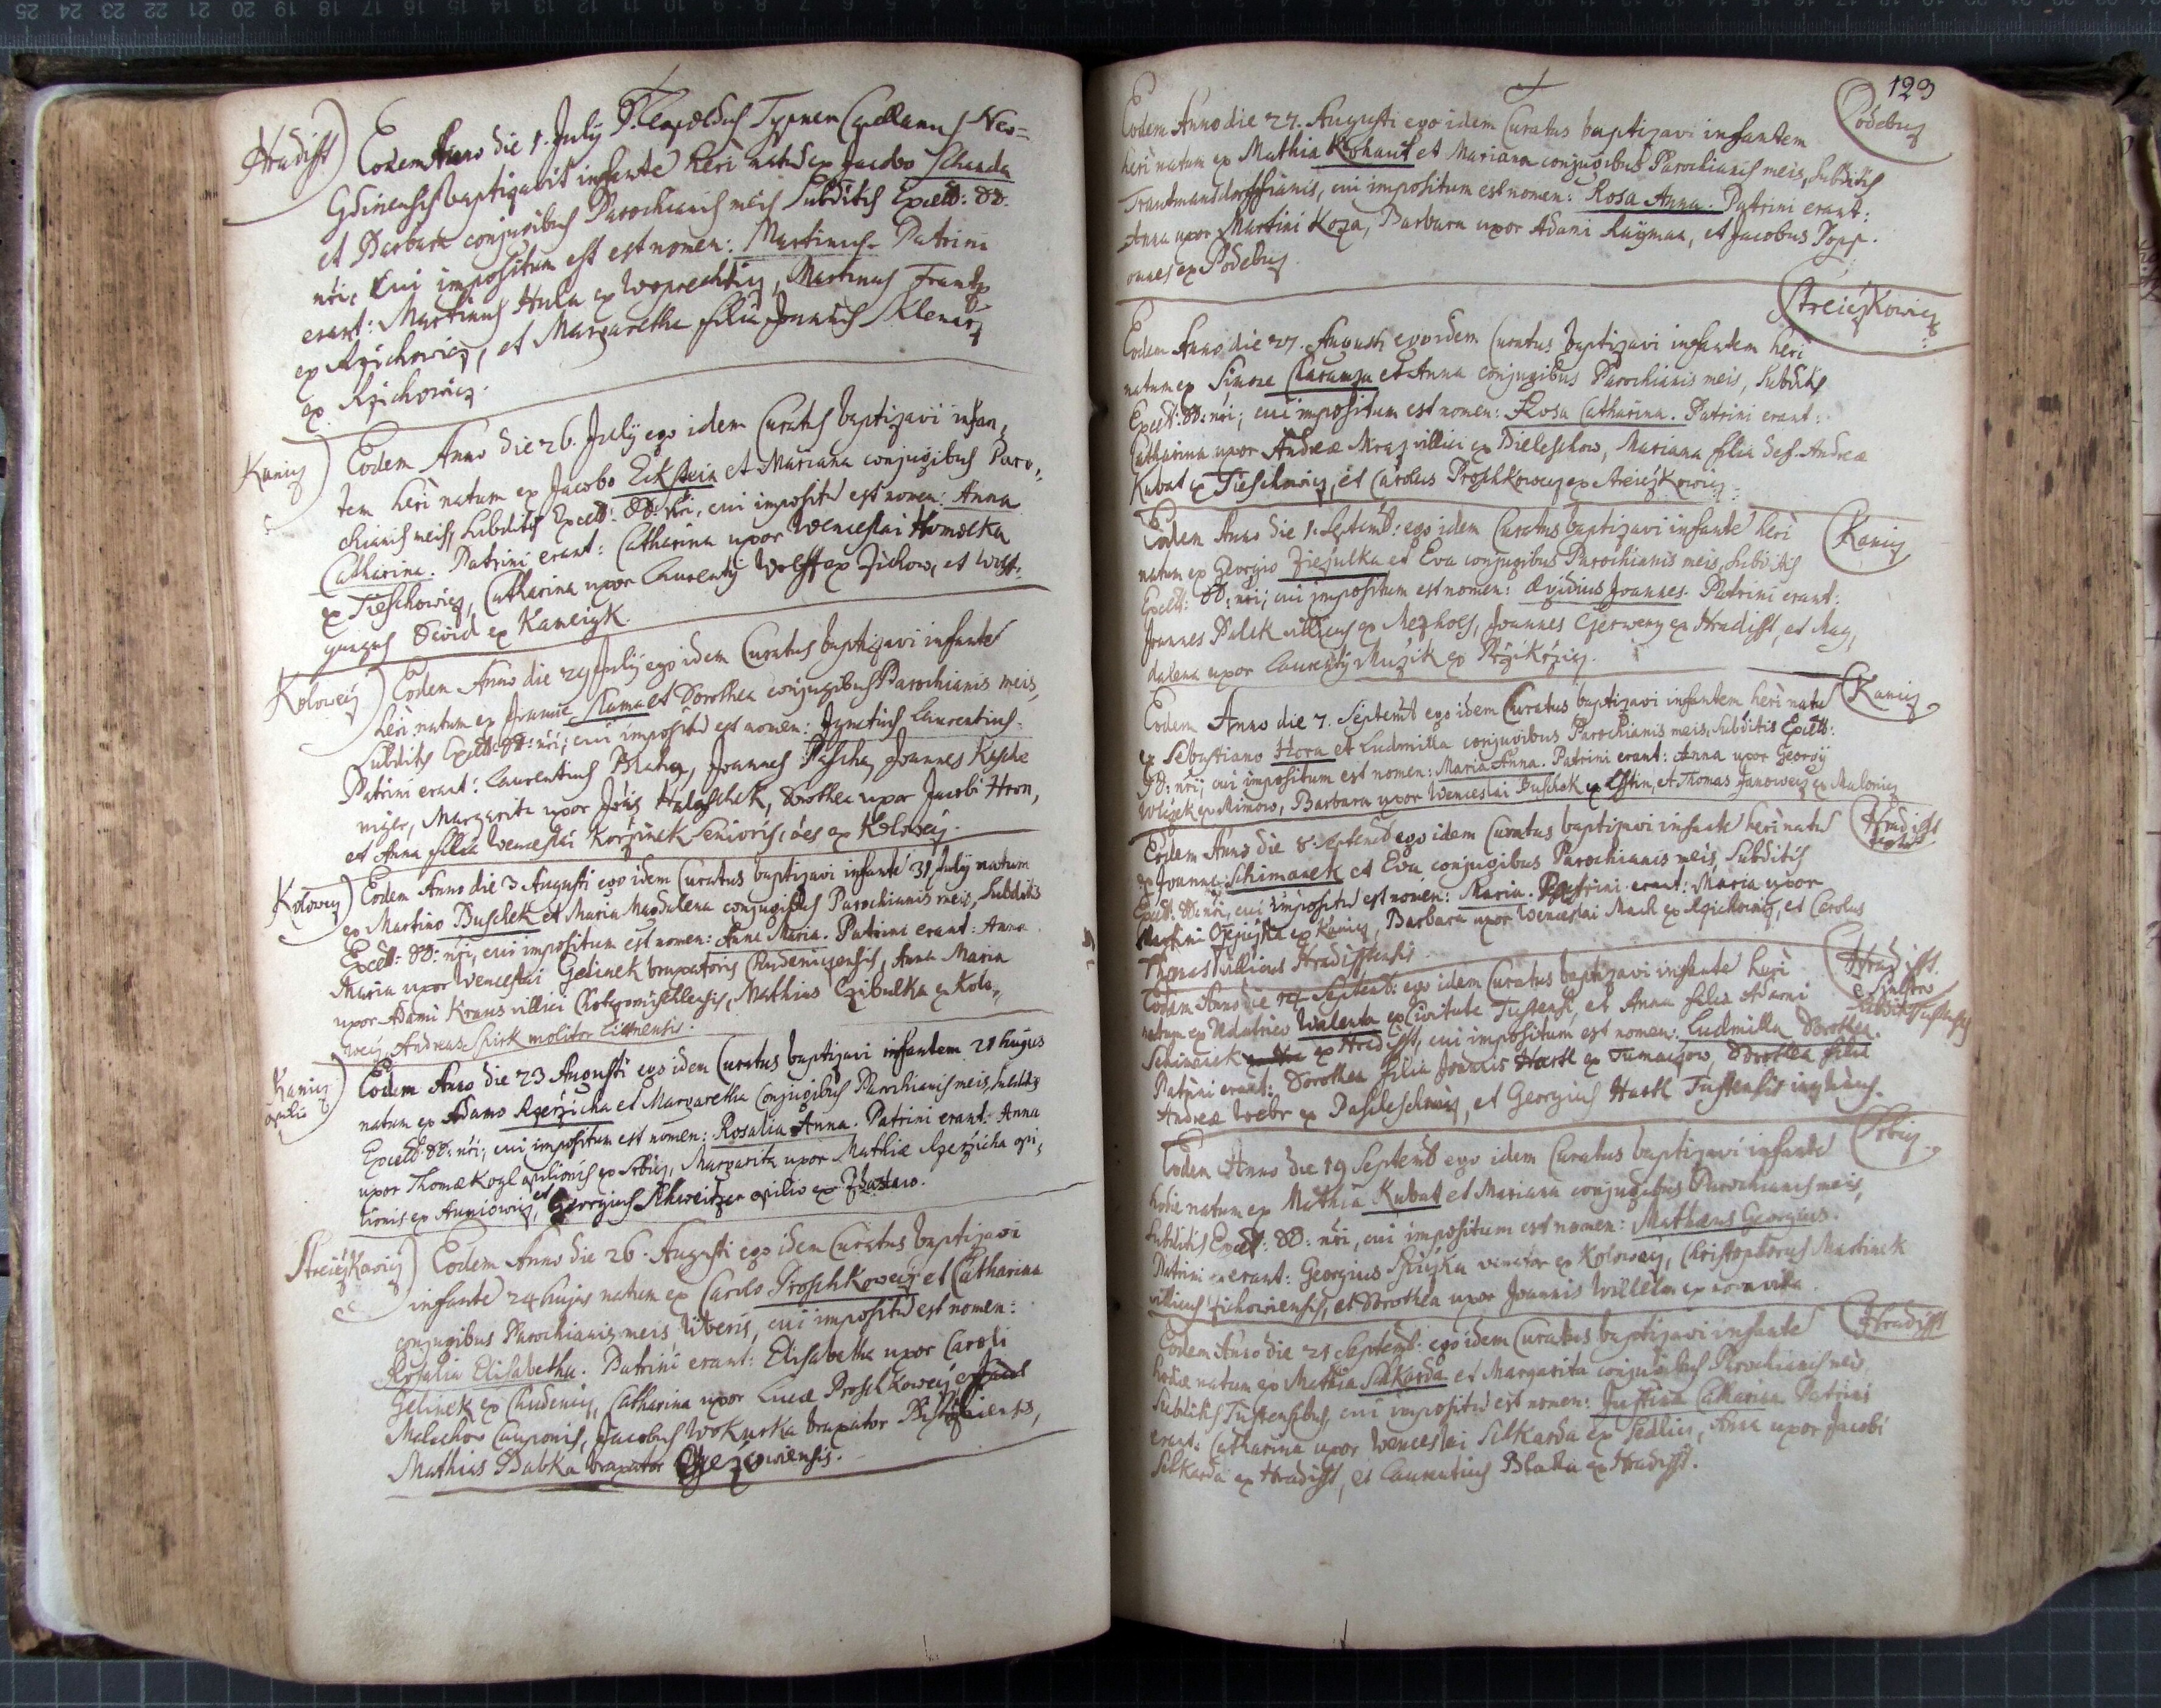 Hradisst
Eodem Anno die 1. July P. Leopoldus Typner Capellanus Neo=
Gdinensis baptizavit infante heri natu ex Jacobo Schanda
et Barbara conjugibus Parochianis meis Subditis Excell: DD:
nri, Cui impositum est est nomen: Martinus. Patrini
erant: Martinus Hula ex Woprechtiz, Martinus Frantz
ex Rzichowiez, et Margaretha filia Joannis Klenarz
ex Rzichowiez.
Kaniez
Eodem Anno die 26. July ego idem Curatus baptizavi infan,
tem heri natum ex Jacobo Eckstein et Mariana conjugibus Paro,
chianis meis, Subditis Excell: DD: nri, cui impositu est nomen: Anna
Catharina. Patrini erant: Catharina uxor Wenceslai Homolka
ex Tieschowiez, Catharina uxor Laurentij Wolff ex Zichow, et Wolf,
gangus David ex Kameizk.
Kolowecz
Eodem Anno die 29 July ego idem Curatus baptizavi infante
heri natum ex Joanne Slama et Dorothea conjugibus Parochianis meis,
Subditis Excell: DD: nri; cui impositu est nomen: Ignatius Laurentius.
Patrini erant: Laurentius Blaha, Joannes Pascha, Joannes Kasche
Margarita uxor Jois Halaschek, Dorothea uxor Jacobi Hron,
et Anna filia Wenceslai Korzinek Senioris, oes ex Kolowecz.
Kolowecz
Eodem Anno die 3 Augusti ego idem Curatus baptizavi infante 31 July natum
ex Martino Buschek et Maria Magdalena conjugibus Parochianis meis, Subditis
Excell: DD: nri, cui impositum est nomen: Anna Maria. Patrini erant: Anna
Maria uxor Wenceslai Gelinek braxatoris Chudenizensis, Anna Maria
uxor Adami Kraus villici Chotzomischlensis, Mathias Czibulka ex Kolo,
wecz, Andreas Spirk molitor
Kaniez
opilio
Eodem Anno die 23 Augusti ego idem Curatus baptizavi infantem 21 hujus
natum ex Adamo Rzerzicha et Margaretha Conjugibus Parochianis meis, Subditis
Excell: DD: nri; cui impositum est nomen: Rosalia Anna. Patrini erant: Anna
uxor Thomae Kozl opilionis ex Srbiez, Margarita uxor Mathiae Rzerzicha opi,
lionis ex Auniowiez, et Georgius Schweitzer opilio ex
Streiczkowiez
Eodem Anno die 26. Augusti ego idem Curatus baptizavi
infante 24 hujus natum ex Carolo Proschkowecz et Catharina
conjugibus Parochianis meis liberis, cui impositu est nomen:
Rosalia Elisabetha. Patrini erant: Elisabetha uxor Caroli
Gelinek ex Chudeniz, Catharina uxor Lucae Proschkowecz
Malechow Cauponis, Jacobus Wokurka braxator
Mathias Babka braxator
129
Podebuz
Eodem Anno die 27. Augusti ego idem Curatus baptizavi infantem
heri natum ex Mathia Kohaut et Mariana conjugibus Parochianis meis, Subditis
Trautmansdorffianis, cui impositum est nomen: Rosa Anna. Patrini erant:
Anna uxor Martini Koza, Barbara uxor Adami Rayman, et Jacobus Popp.
omnes ex Podebuz
Streiczkowiez
Eodem Anno die 27. Augusti ego idem Curatus baptizavi infantem heri
natum ex Simone Charamza et Anna conjugibus Parochianis meis, Subditis
Excell: DD: nri; cui impositum est nomen: Rosa Catharina. Patrini erant:
Catharina uxor Andreae Mraz villici ex Bieleschow, Mariana filia def. Andreae
Kubat ex Tieschowiez, et Carolus Proschkowecz ex Streiczkowiez.
Kaniez
Eodem Anno die 1. Septemb: ego idem Curatus baptizavi infante heri
natum ex Georgio Ziezulka et Eva conjugibus Parochianis meis, Subditis
Excell: DD: nri; cui impositum est nomen: Aegidius Joannes. Patrini erant:
Joannes Palek villicus ex Mezholz, Joannes Czerweny ex Hradisst, et Mag,
dalena uxor Laurentij Muzik ex
Kaniez
Eodem Anno die 7. Septemb ego idem Curatus baptizavi infantem heri natu
ex Sebastiano Hora et Ludmilla conjugibus Parochianis meis, Subditis Excell:
DD: nri, cui impositum est nomen: Maria Anna. Patrini erant: Anna uxor Georgij
Wlczek ex Mimow, Barbara uxor Wenceslai Duschek ex et Thomas Janowecz ex Maloniez
Hradisst
Eodem Anno die 8. Septemb ego idem Curatus baptizavi infante heri natu
ex Joanne Schimanek et Eva conjugibus Parochianis meis, Subditis
Excell: DD: nri, cui impositu est nomen: Maria. Patrini erant: Maria uxor
Martini ex Kaniez, Barbara uxor Wenceslai Mach ex Rzichowiez, et Carolus
Thomas villicus Hradisstensis.
Hradisst.
Eodem Anno die 14 Septemb: ego idem Curatus baptizavi infante heri
natum ex Wolentia ex Civitate Tustensi, et Anna filia Adami
Schimanek ex Hradisst, cui impositum est nomen: Ludmilla Dorothea.
Patrini erant: Dorothea filia Joannis Hartl ex Tumaczow, Dorothea filia
Andreae Webr ex et Georgius Hartl Tustensis
Srbiez
Eodem Anno die 19 Septemb ego idem Curatus baptizavi infante
hodie natum ex Mathia Kubat et Mariana conjugibus Parochianis meis,
Subditis Excell: DD: nri, cui impositum est nomen: Mathaeus Georgius.
Patrini erant: Georgius venator ex Kolowecz, Christophorus Martinek
villicus Zichowiensis, et Dorothea uxor Joannis Willelm ex
Hradisst
Eodem Anno die 21 Septemb: ego idem Curatus baptizavi infante
hodie natum ex Mathia Selkarda et Margarita conjugibus Parochianis meis,
Subditis Tustensibus, cui impositu est nomen: Justina Catharina. Patrini
erant: Catharina uxor Wenceslai Selkarda ex Sedliez, Anna uxor Jacobi
Selkarda ex Hradisst, et Laurentius Blaha ex Hradisst.